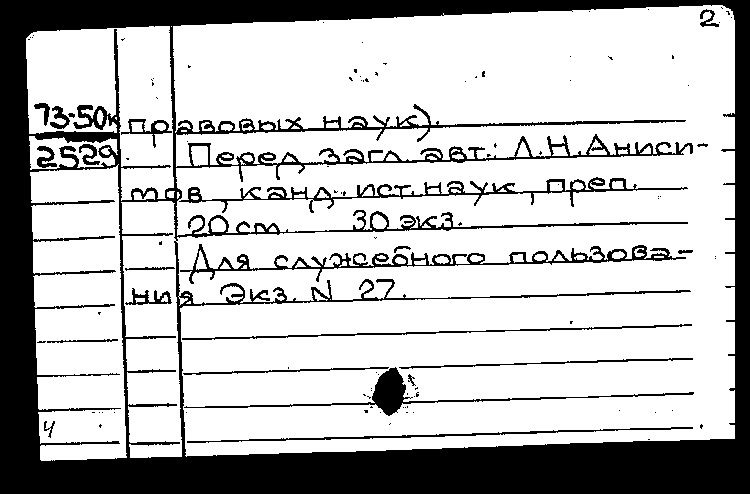 2
73-50к правовых наук).
2529 Перед загл. авт.: Л.Н.Аниси-
мов, канд. ист. наук, преп.
20 cm. 30 экз.
Для служебного пользова-
ния. Экз. N 27.
4